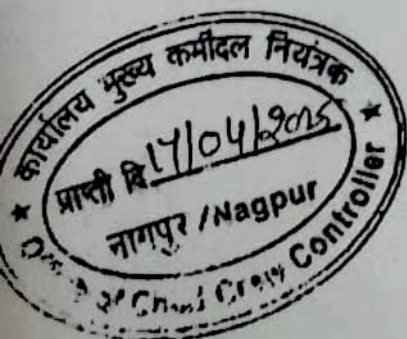 कार्यालय मुख्य कर्मीदल नियंत्रक
प्राप्ती दि 17/04/2025
नागपुर / Nagpur
Office of Chief Crew Controller